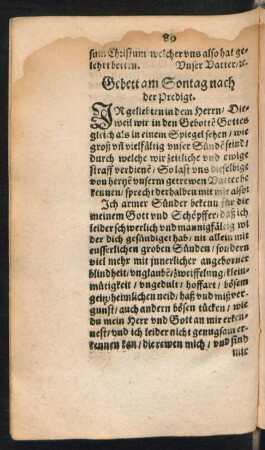 89
sum Christum/welcher vns also hat ge-
lehrt betten. Vnser Vatter/ꝛc.
Gebett am Sontag nach
der Predigt.
IR geliebten in dem Herrn/ Die-
weil wir in den Gebottē Gottes
gleich als in einem Spiegel sehen/ wie
groß vñ vielfältig vnser Sünde seind/
durch welche wir zeitliche vnd ewige
straff verdienē/ So last vns dieselbige
von hertzē vnserm getrewen Vatter be
kennen/ sprecht derhalben mit mir also:
Ich armer Sünder bekenn für dir
meinem Gott vnd Schöpffer/ daß ich
leider schwerlich vnd mannigfältig wi
der dich gesündiget hab/ nit allein mit
eusserlichen groben Sünden/ sondern
viel mehr mit jnnerlicher angeborner
blindheit/ vnglaubē/ zweiffelung/ klein-
mütigkeit/ vngedult/ hoffart/ bösem
geitz/ heimlichen neid/ haß vnd mißver-
gunst/ auch andern bösen tücken/ wie
du mein Herr vnd Gott an mir erken-
nest/ vnd ich leider nicht genugsam er-
kennen kan/ die rewen mich/ vnd sind
mir